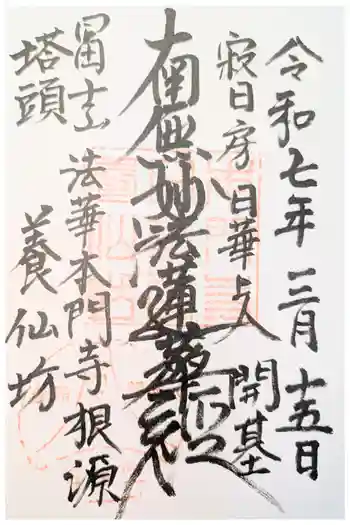 令和七年 三月 十五日
寂日房日華上人 開基
南無妙法蓮華経
富士山 法華本門寺根源
塔頭 養仙坊